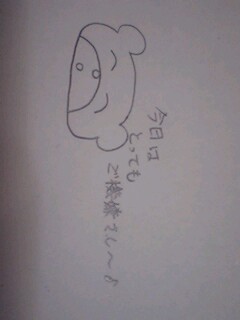 今日は
とっても
ご機嫌さん～♪